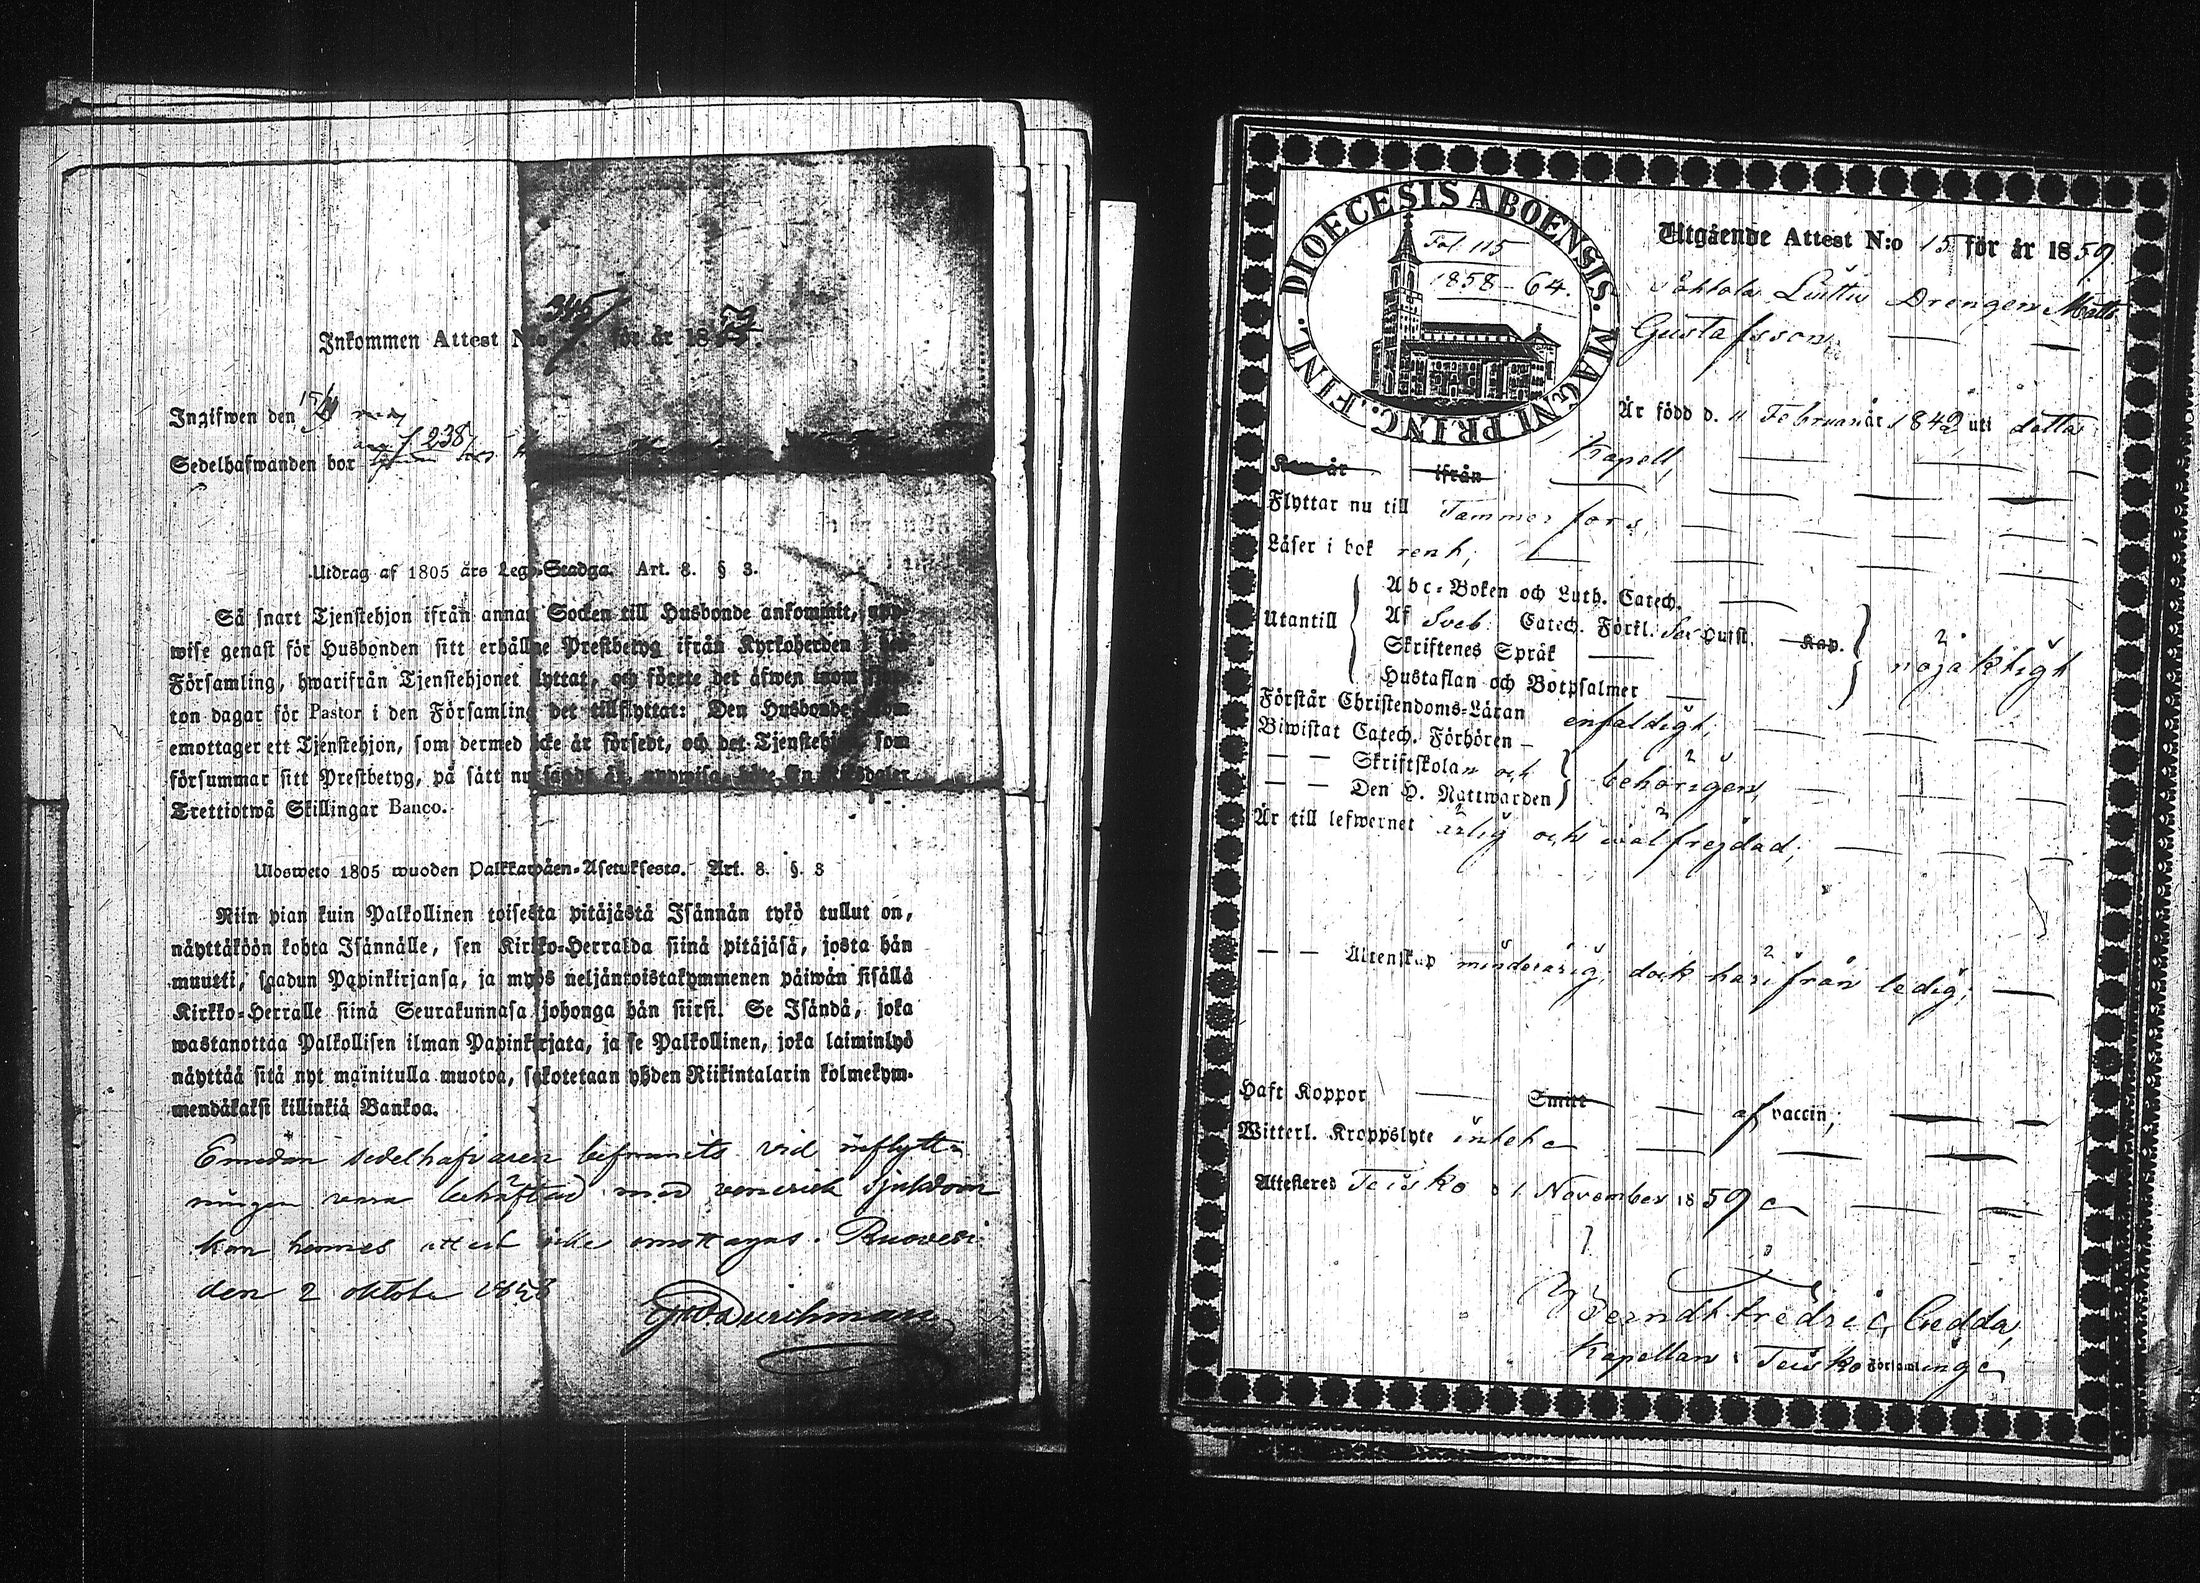 Inkommen Attest N:o 345 för år 18
Ingifwen den
f 238
Sedelhafwanden bor
Utdrag af 1805 års Lego-Stadga. Art. 8. § 3.
Så snart Tjenstehjon ifrån annan Socken till Husbonde ankommit, upp-
wise genast för Husbonden sitt erhållne Prestbetyg ifrån Kyrkoherden i den
Församling, hwarifrån Tjenstehjonet flyttat, och förete det äfwen inom fjor-
ton dagar för Pastor i den Församling det tillflyttat: Den Husbonde, som
emottager ett Tjenstehjon, som dermed icke är försedt, och det Tjenstehjon, som
försummar sitt Prestbetyg, på sätt nu sagdt är, uppwisa, böte En Riksdaler
Trettiotwå Skillingar Banco.
Ulosweto 1805 wuoden Palkkawäen-Asetuksesta. Art. 8. §. 3
Niin pian kuin Palkollinen toisesta pitäjästä Isännän tykö tullut on,
näyttäköön kohta Isännälle, sen Kirkko-Herralda siinä pitäjäsä, josta hän
muutti, saadun Papinkirjansa, ja myös neljäntoistakymmenen päiwän sisällä
Kirkko-Herralle siinä Seurakunnasa johonga hän siirsi. Se Isändä, joka
wastanottaa Palkollisen ilman Papinkirjata, ja se Palkollinen, joka laiminlyö
näyttää sitä nyt mainitulla muotoa, sakotetaan yhden Riikintalarin kolmekym-
mendäkaksi killinkiä Bankoa.
Emedan sedelhafvaren befunnits vid inflytt-
ningen vara behäftad med venerisk sjukdom
kan hennes attest icke emottagas. Ruovesi
den 2 oktobr 1858
DIOECESIS ABOENSIS. MAGNI PRINC. FINL.
Fol. 115
1858-64.
Utgående Attest N:o 15 för år 1859
Drengen Matts
Gustafsson
Är född d. 11 Februari år 1842 uti detta
Kapell,
Kom år ifrån
Flyttar nu till Tammerfors
Läser i bok rent,
Abc-Boken och Luth. Catech.
Utantill Af Sveb. Catech. Förkl. Sex Hufst. Kap.
Skriftenes Språk nöjaktigt
Hustaflan och Botpsalmer
Förstår Christendoms-Läran enfaldigt,
Biwistat Catech. Förhören
— — Skriftskolan och behörigen,
— — Den H. Nattwarden
Är till lefwernet ärlig och wälfrejdad,
— — Äktenskap minderårig, dock härifrån ledig;
Haft Koppor Smitt af vaccin,
Witterl. Kroppslyte intet
Attesteras Teisko d 1 November 1859
Berndt Fredric Gedda,
Kapellan i Teisko Församling